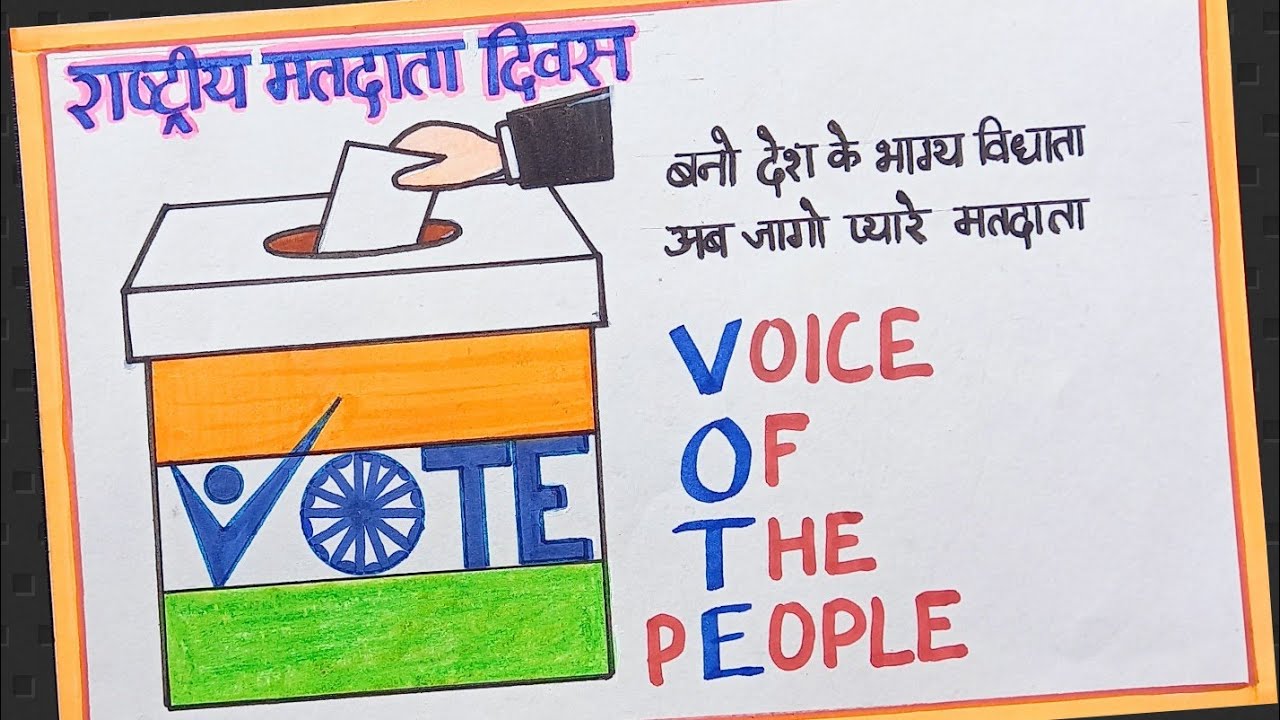 राष्ट्रीय मतदाता दिवस
बनो देश के भाग्य विधाता
अब जागो प्यारे मतदाता
VOTE
VOICE
OF
THE
PEOPLE